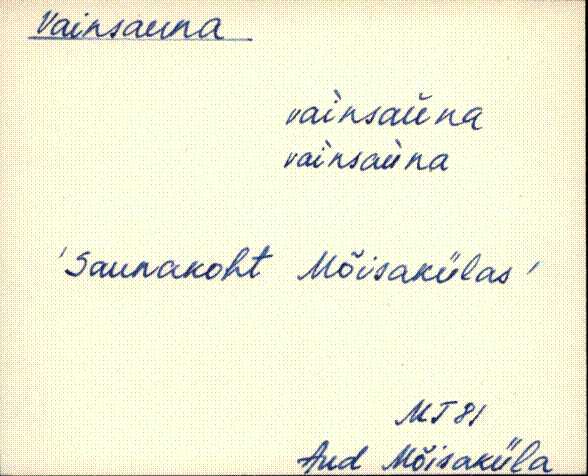 Vainsauna
vaìnsaŭna
vaìnsaùna
'Saunakoht Mõisakülas'
MT 81
Aud Mõisaküla